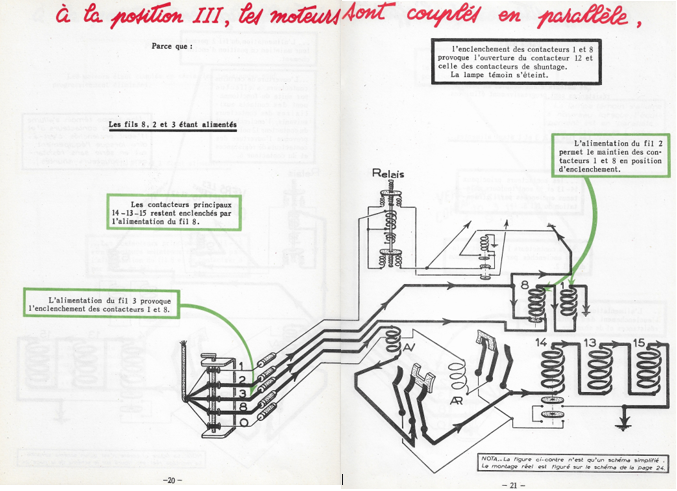 à la position III, les moteurs sont couplés en parallèle,
Parce que :
Les fils 8, 2 et 3 étant alimentés
Les contacteurs principaux
14 -13-15 restent enclenchés par
l'alimentation du fil 8.
L'alimentation du fil 3 provoque
l'enclenchement des contacteurs 1 et 8.
1
2
3
8
0
-20-
l'enclenchement des contacteurs 1 et 8
provoque l'ouverture du contacteur 12 et
celle des contacteurs de shuntage.
La lampe témoin s'éteint.
L'alimentation du fil 2
permet le maintien des con-
tacteurs 1 et 8 en position
d'enclenchement.
Relais
8
1
AV
AR
14
13
15
NOTA._ La figure ci-contre n'est qu'un schéma simplifié.
Le montage réel est figuré sur le schéma de la page 24.
-21-